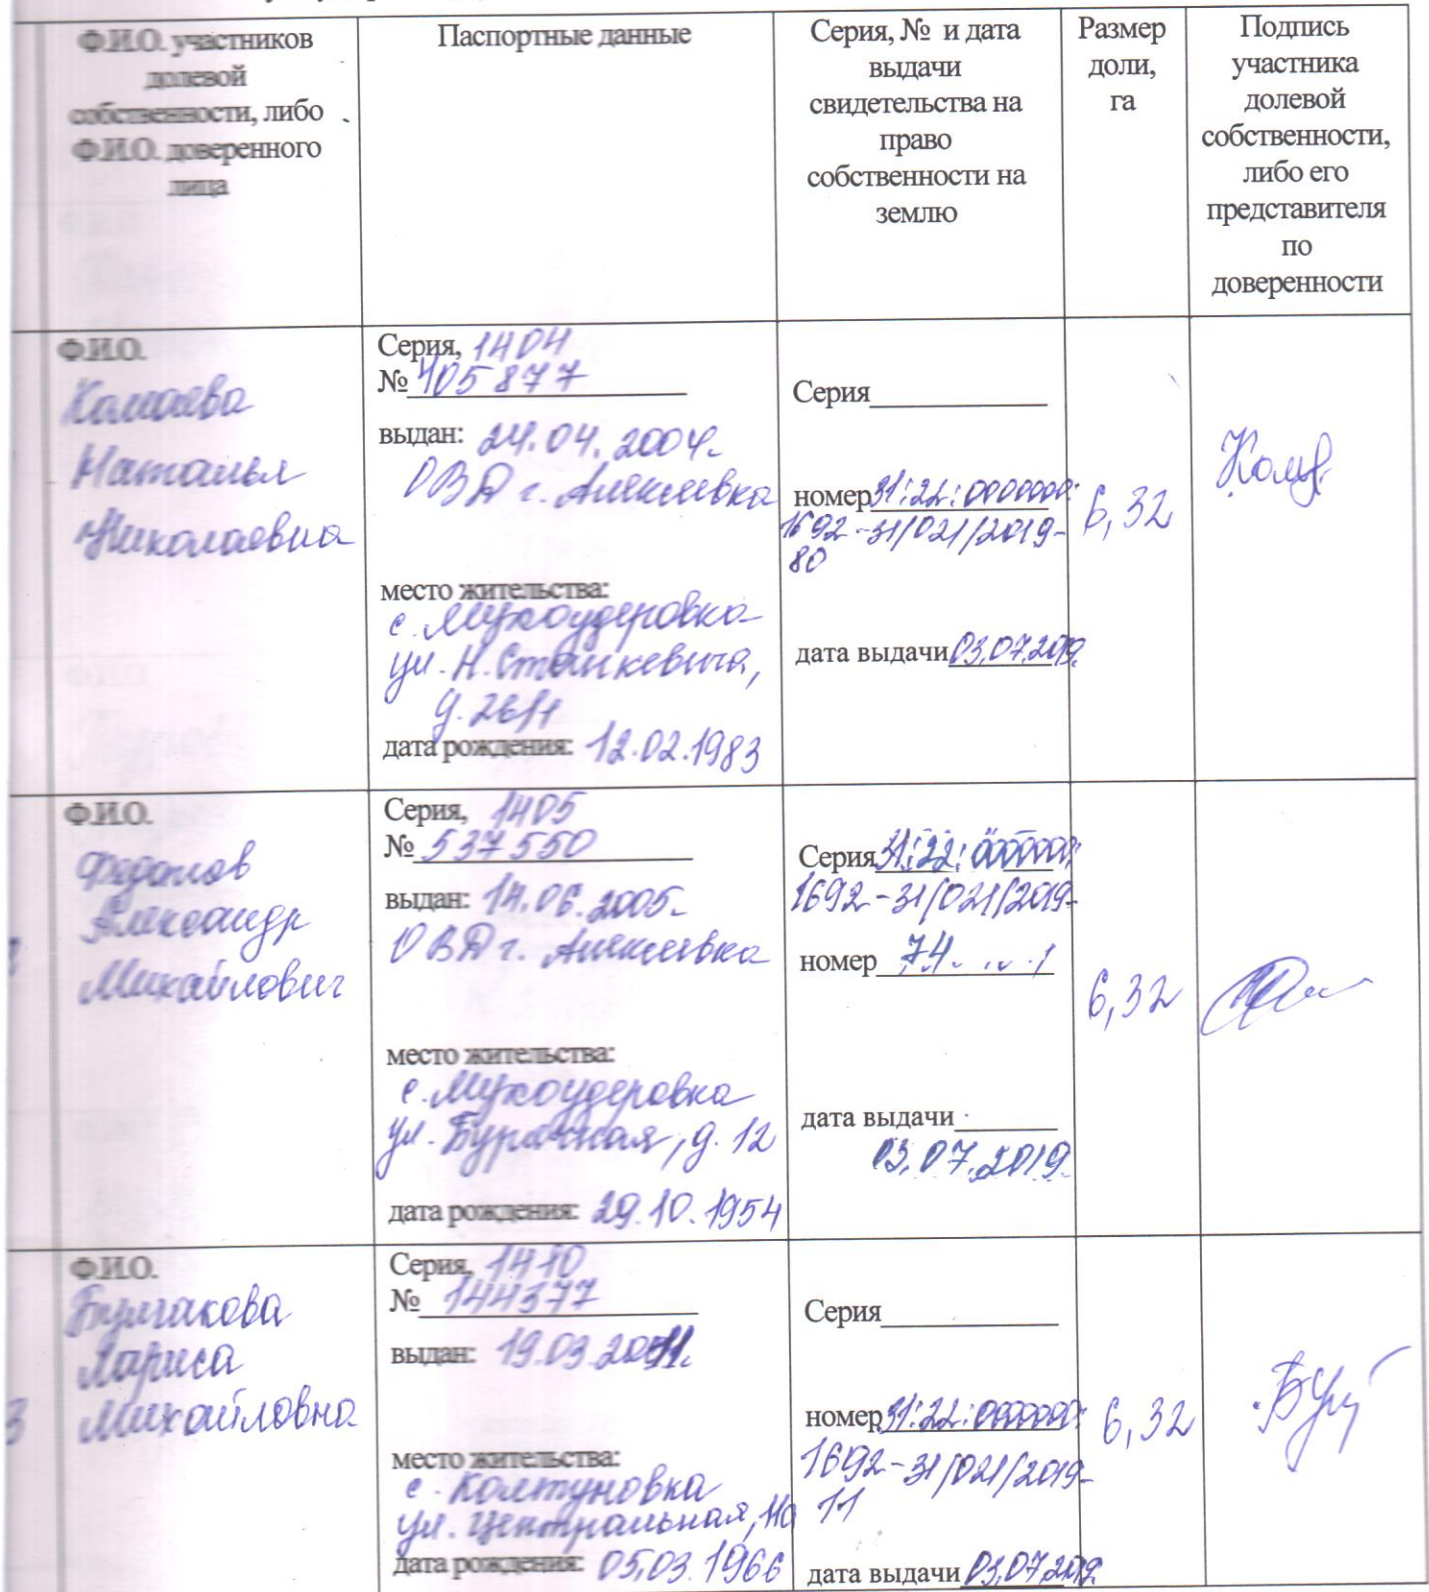 Ф.И.О. участников
долевой
собственности, либо
Ф.И.О. доверенного
лица
Паспортные данные
Серия, № и дата
выдачи
свидетельства на
право
собственности на
землю
Размер
доли,
га
Подпись
участника
долевой
собственности,
либо его
представителя
по
доверенности
Ф.И.О.
Наталья
Николаевна
Серия, 1404
№ 405877
выдан: 24.04.2004г.
ОВД г. Алексеевка
место жительства:
с. Мухоудеровка
ул. Н. Станкевича,
д. 26/1
дата рождения: 12.02.1983
Серия
номер 31:22:0000000:
1692-31/021/2019-
80
дата выдачи 03.07.2019
6,32
Ф.И.О.
Александр
Михайлович
Серия, 1405
№ 537550
выдан: 14.06.2005г.
ОВД г. Алексеевка
место жительства:
с. Мухоудеровка
ул. Бурачная, д. 12
дата рождения: 29.10.1954
Серия 31:22:0000000:
1692-31/021/2019-
номер 74
дата выдачи
03.07.2019
6,32
3
Ф.И.О.
Булгакова
Лариса
Михайловна
Серия, 1410
№ 144377
выдан: 19.03.2011г.
место жительства:
с. Колтуновка
ул. Центральная,
дата рождения: 05.03.1966
Серия
номер 31:22:0000000:
1692-31/021/2019-
11
дата выдачи 03.07.2019
6,32